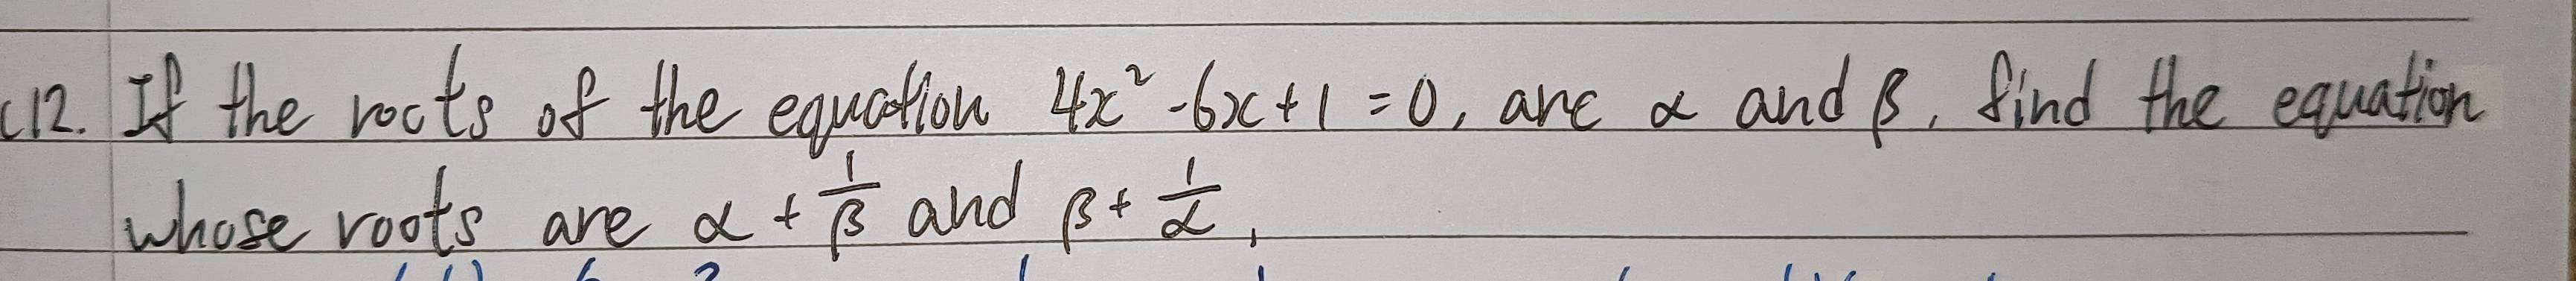 (12. If the roots of the equation 4x² - 6x + 1 = 0, are α and β, find the equation
whose roots are α + 1/β and β + 1/α,